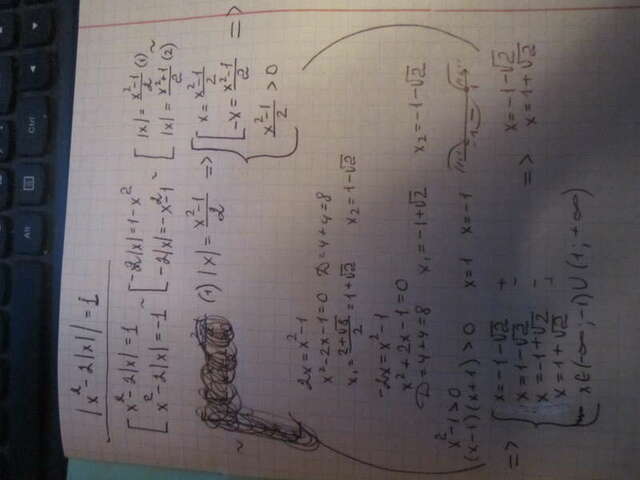 Alt
Ctrl
|x² - 2|x|| = 1
[ x² - 2|x| = 1
x² - 2|x| = -1 ~ [ -2|x| = 1 - x²
-2|x| = -x² - 1 ~ [ |x| = (x² - 1)/2 (1)
|x| = (x² + 1)/2 (2) ~
~ (1) |x| = (x² - 1)/2 => { [ x = (x² - 1)/2
-x = (x² - 1)/2
(x² - 1)/2 > 0 =>
2x = x² - 1
x² - 2x - 1 = 0 D = 4 + 4 = 8
x₁ = (2 + √8)/2 = 1 + √2 x₂ = 1 - √2
-2x = x² - 1
x² + 2x - 1 = 0
D = 4 + 4 = 8 x₁ = -1 + √2 x₂ = -1 - √2
x² - 1 > 0
(x - 1)(x + 1) > 0 x = 1 x = -1 -1 1
=> { x = -1 - √2 +
x = 1 - √2 -
x = -1 + √2 -
x = 1 + √2 +
x ∈ (-∞; -1) ∪ (1; +∞)
=> x = -1 - √2
x = 1 + √2